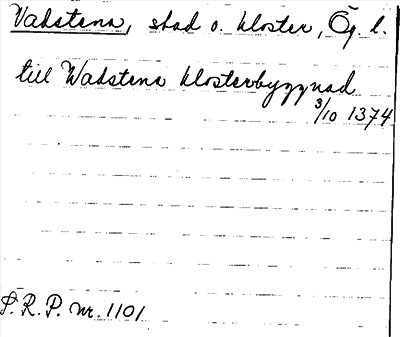 Vadstena, stad o. kloster, Ög. l.
till Wadstena klosterbyggnad
3/10 1374
S. R. P. nr. 1101